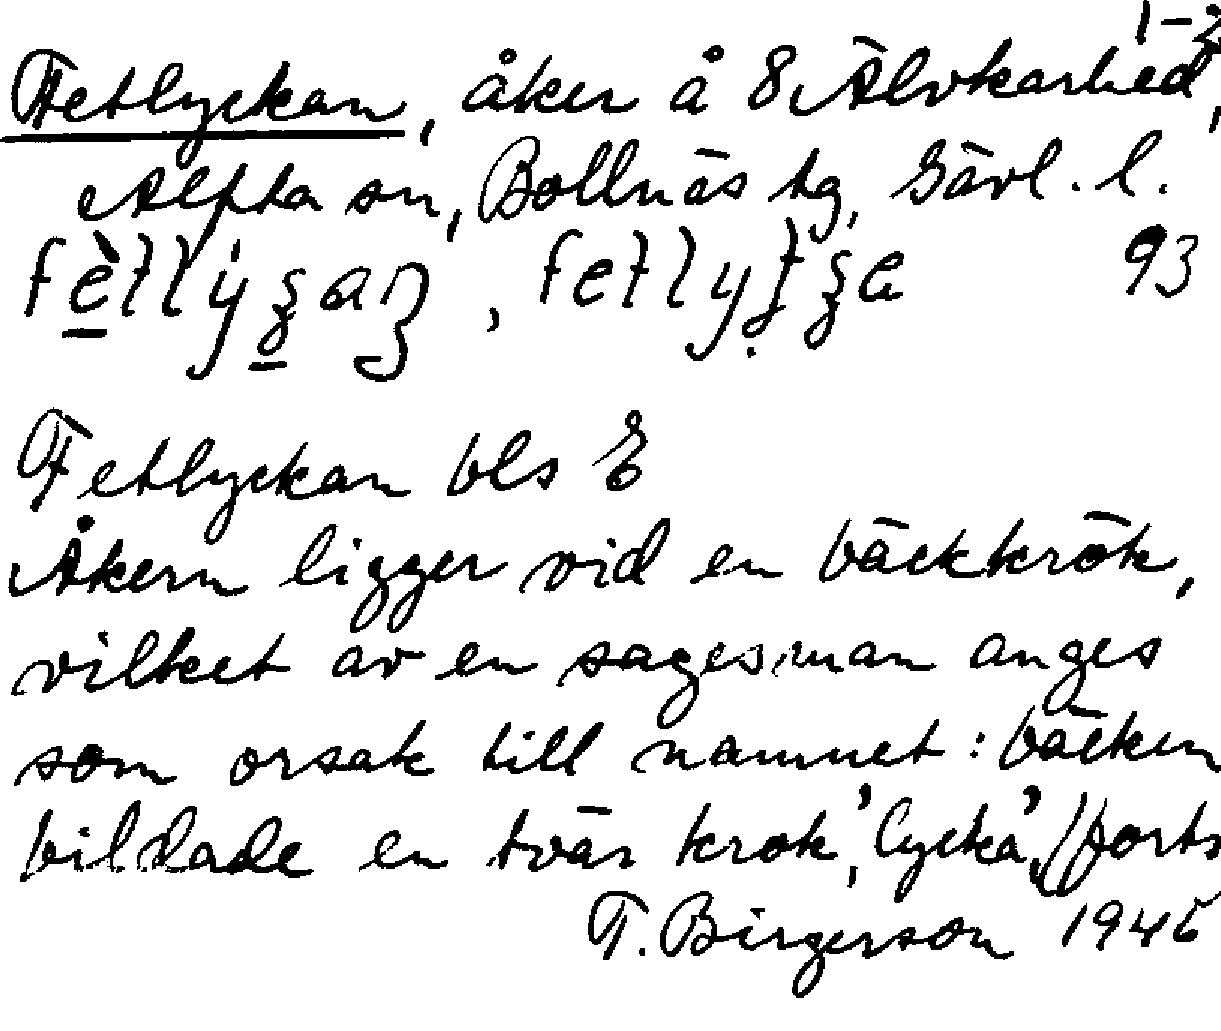 1-2
Fetlyckan, åker å 8 Älvkarhed,
Alfta sn, Bollnäs tg, Gävl. l.
93
Fetlyckan bls E
Åkern ligger vid en bäckkrök,
vilket av en sagesman anges
som orsak till namnet: bäcken
bildade en tvär krok, 'lycka', (forts
T. Birgerson 1945